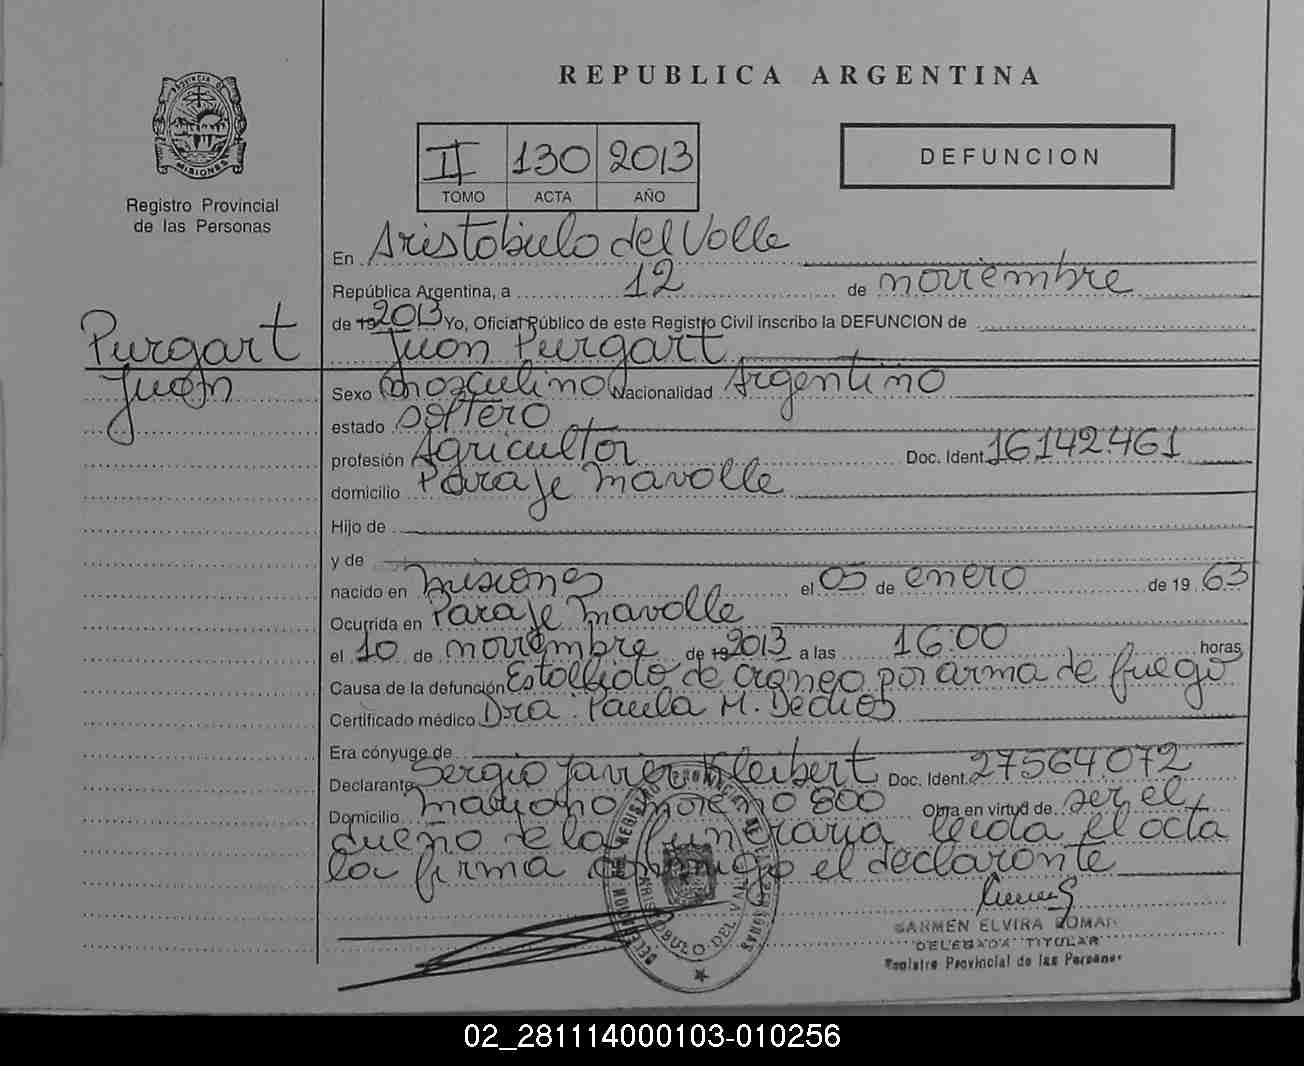 REPUBLICA ARGENTINA
PROVINCIA DE
MISIONES
Registro Provincial
de las Personas
II 130 2013
TOMO ACTA AÑO
DEFUNCION
En Aristobulo del Valle
República Argentina, a 12 de noviembre
de 19 2013 Yo, Oficial Público de este Registro Civil inscribo la DEFUNCION de
Purgart
Juan
Juan Purgart
Sexo masculino Nacionalidad Argentino
estado soltero
profesión Agricultor Doc. Ident. 16.142.461
domicilio Paraje Mavalle
Hijo de
y de
nacido en Misiones el 05 de enero de 19 63
Ocurrida en Paraje Mavalle
el 10 de noviembre de 19 2013 a las 16:00 horas
Causa de la defunción Estallido de craneo por arma de fuego
Certificado médico Dra. Paula M.
Era cónyuge de
Declarante Sergio Javier Kleibert Doc. Ident. 27564.072
Domicilio Mariano Moreno 800 Obra en virtud de ser el
dueño de la funeraria leida el acta
la firma conmigo el declarante
CARMEN ELVIRA ROMAN
DELEGADA TITULAR
Registro Provincial de las Personas
02_281114000103-010256